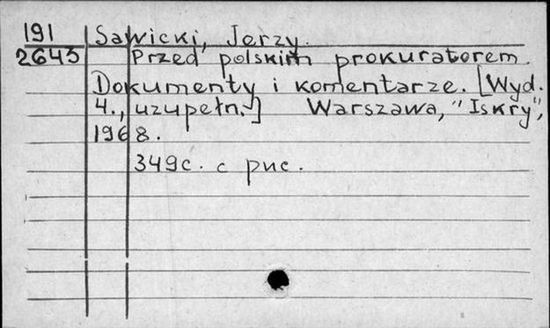 191 Sawicki, Jerzy.
2643 Przed polskim prokuratorem.
Dokumenty i komentarze. [Wyd.
4., uzupełn.] Warszawa, "Iskry",
1968.
349с. с рис.